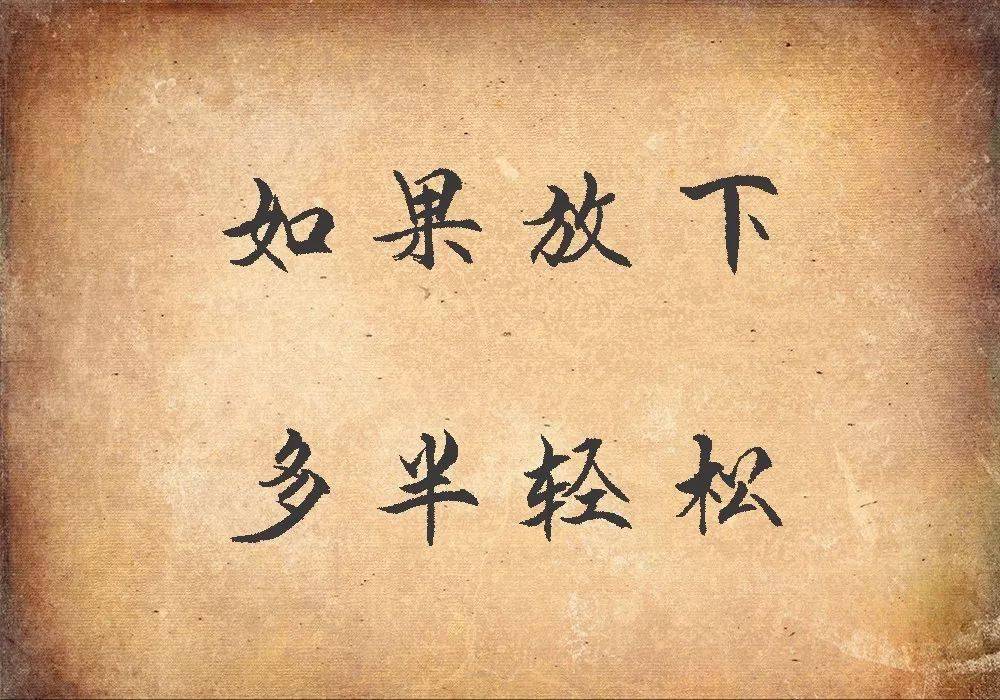 如果放下
多半轻松